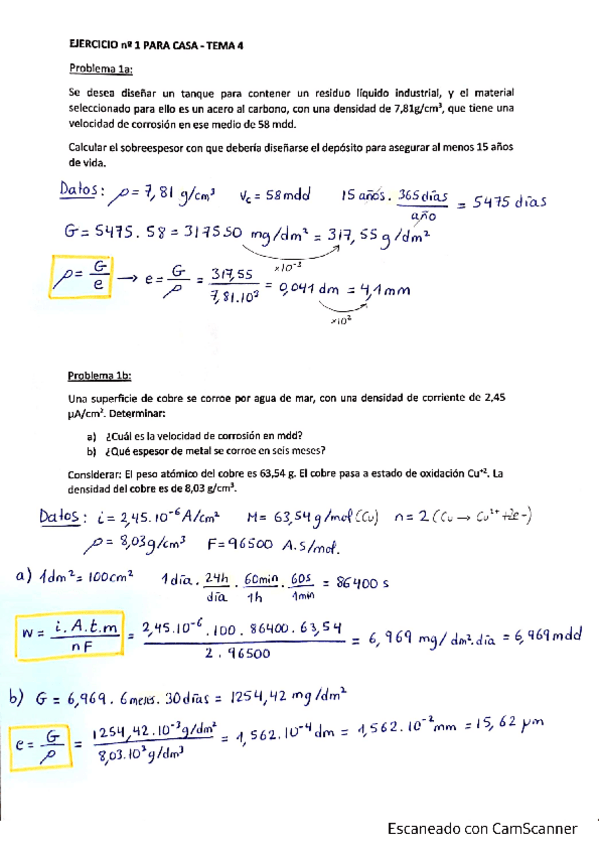 EJERCICIO nº 1 PARA CASA - TEMA 4
Problema 1a:
Se desea diseñar un tanque para contener un residuo líquido industrial, y el material
seleccionado para ello es un acero al carbono, con una densidad de 7,81g/cm³, que tiene una
velocidad de corrosión en ese medio de 58 mdd.
Calcular el sobreespesor con que debería diseñarse el depósito para asegurar al menos 15 años
de vida.
Datos: ρ = 7,81 g/cm³ Vc = 58mdd 15 años . 365 días / año = 5475 días
G = 5475 . 58 = 317550 mg/dm² = 317,55 g/dm²
×10⁻³
ρ = G/e → e = G/ρ = 317,55 / 7,81.10³ = 0,041 dm = 4,1 mm
×10²
Problema 1b:
Una superficie de cobre se corroe por agua de mar, con una densidad de corriente de 2,45
μA/cm². Determinar:
a) ¿Cuál es la velocidad de corrosión en mdd?
b) ¿Qué espesor de metal se corroe en seis meses?
Considerar: El peso atómico del cobre es 63,54 g. El cobre pasa a estado de oxidación Cu⁺². La
densidad del cobre es de 8,03 g/cm³.
Datos: i = 2,45.10⁻⁶ A/cm² M = 63,54 g/mol (Cu) n = 2 (Cu → Cu²⁺ + 2e-)
ρ = 8,03g/cm³ F = 96500 A.S/mol.
a) 1dm² = 100cm² 1día . 24h/día . 60min/1h . 60s/1min = 86400 s
W = i.A.t.m / nF = 2,45.10⁻⁶ . 100 . 86400 . 63,54 / 2 . 96500 = 6,969 mg/dm².día = 6,969 mdd
b) G = 6,969 . 6 meses . 30 días = 1254,42 mg/dm²
e = G/ρ = 1254,42.10⁻³ g/dm² / 8,03.10³ g/dm³ = 1,562.10⁻⁴ dm = 1,562.10⁻² mm = 15,62 μm
Escaneado con CamScanner